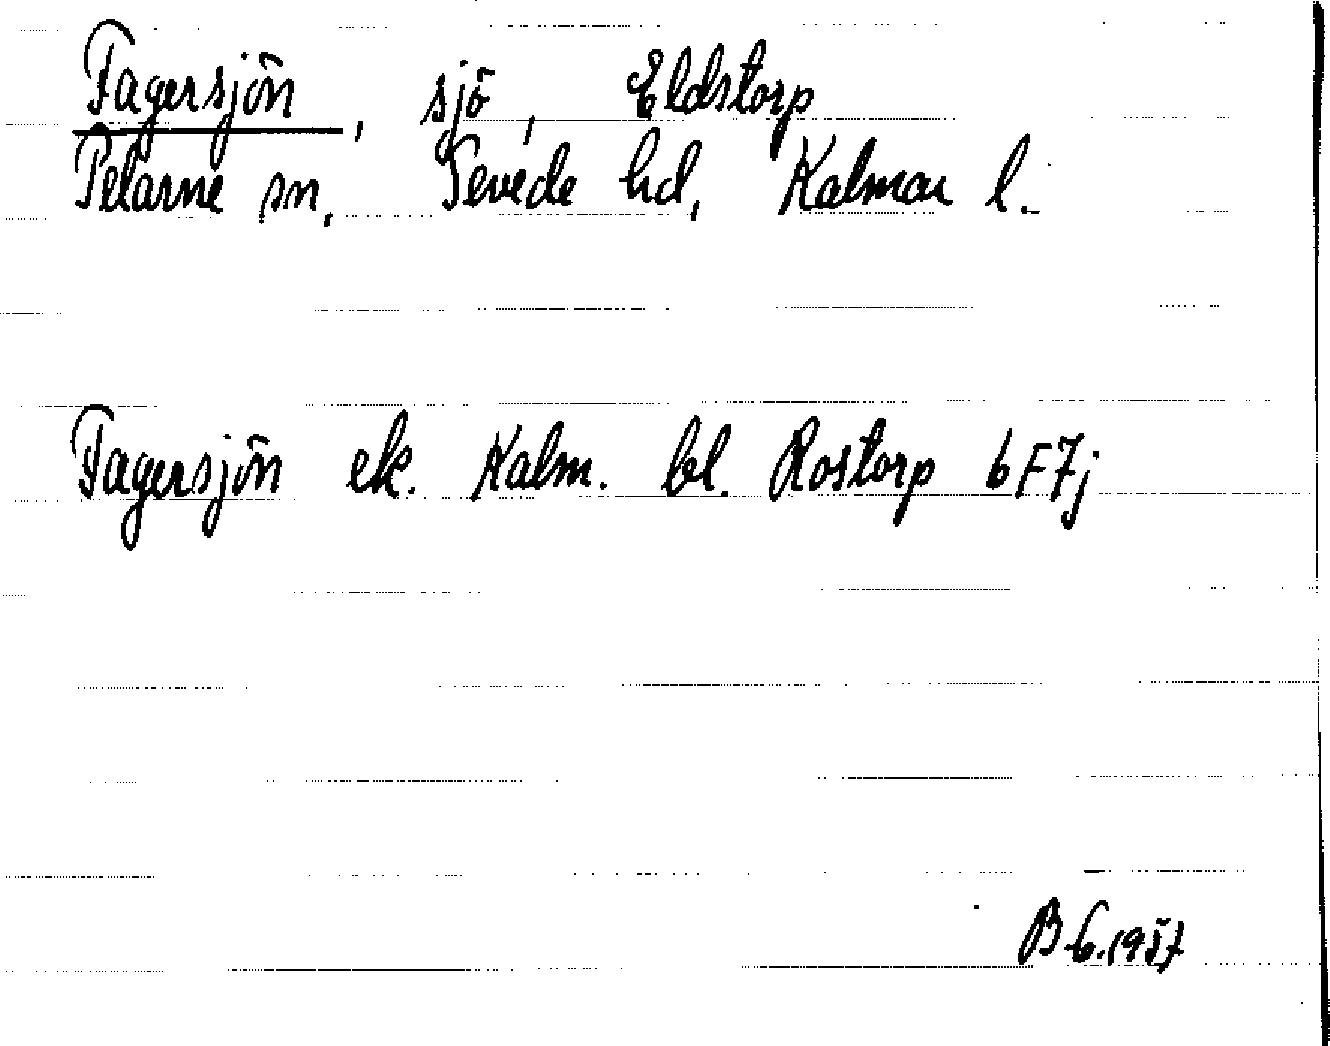 Fagersjön, sjö, Eldstorp
Pelarne sn, Sevede hd, Kalmar l.
Fagersjön ek. Kalm. bl. Rostorp 6F7j
B 6. 1957